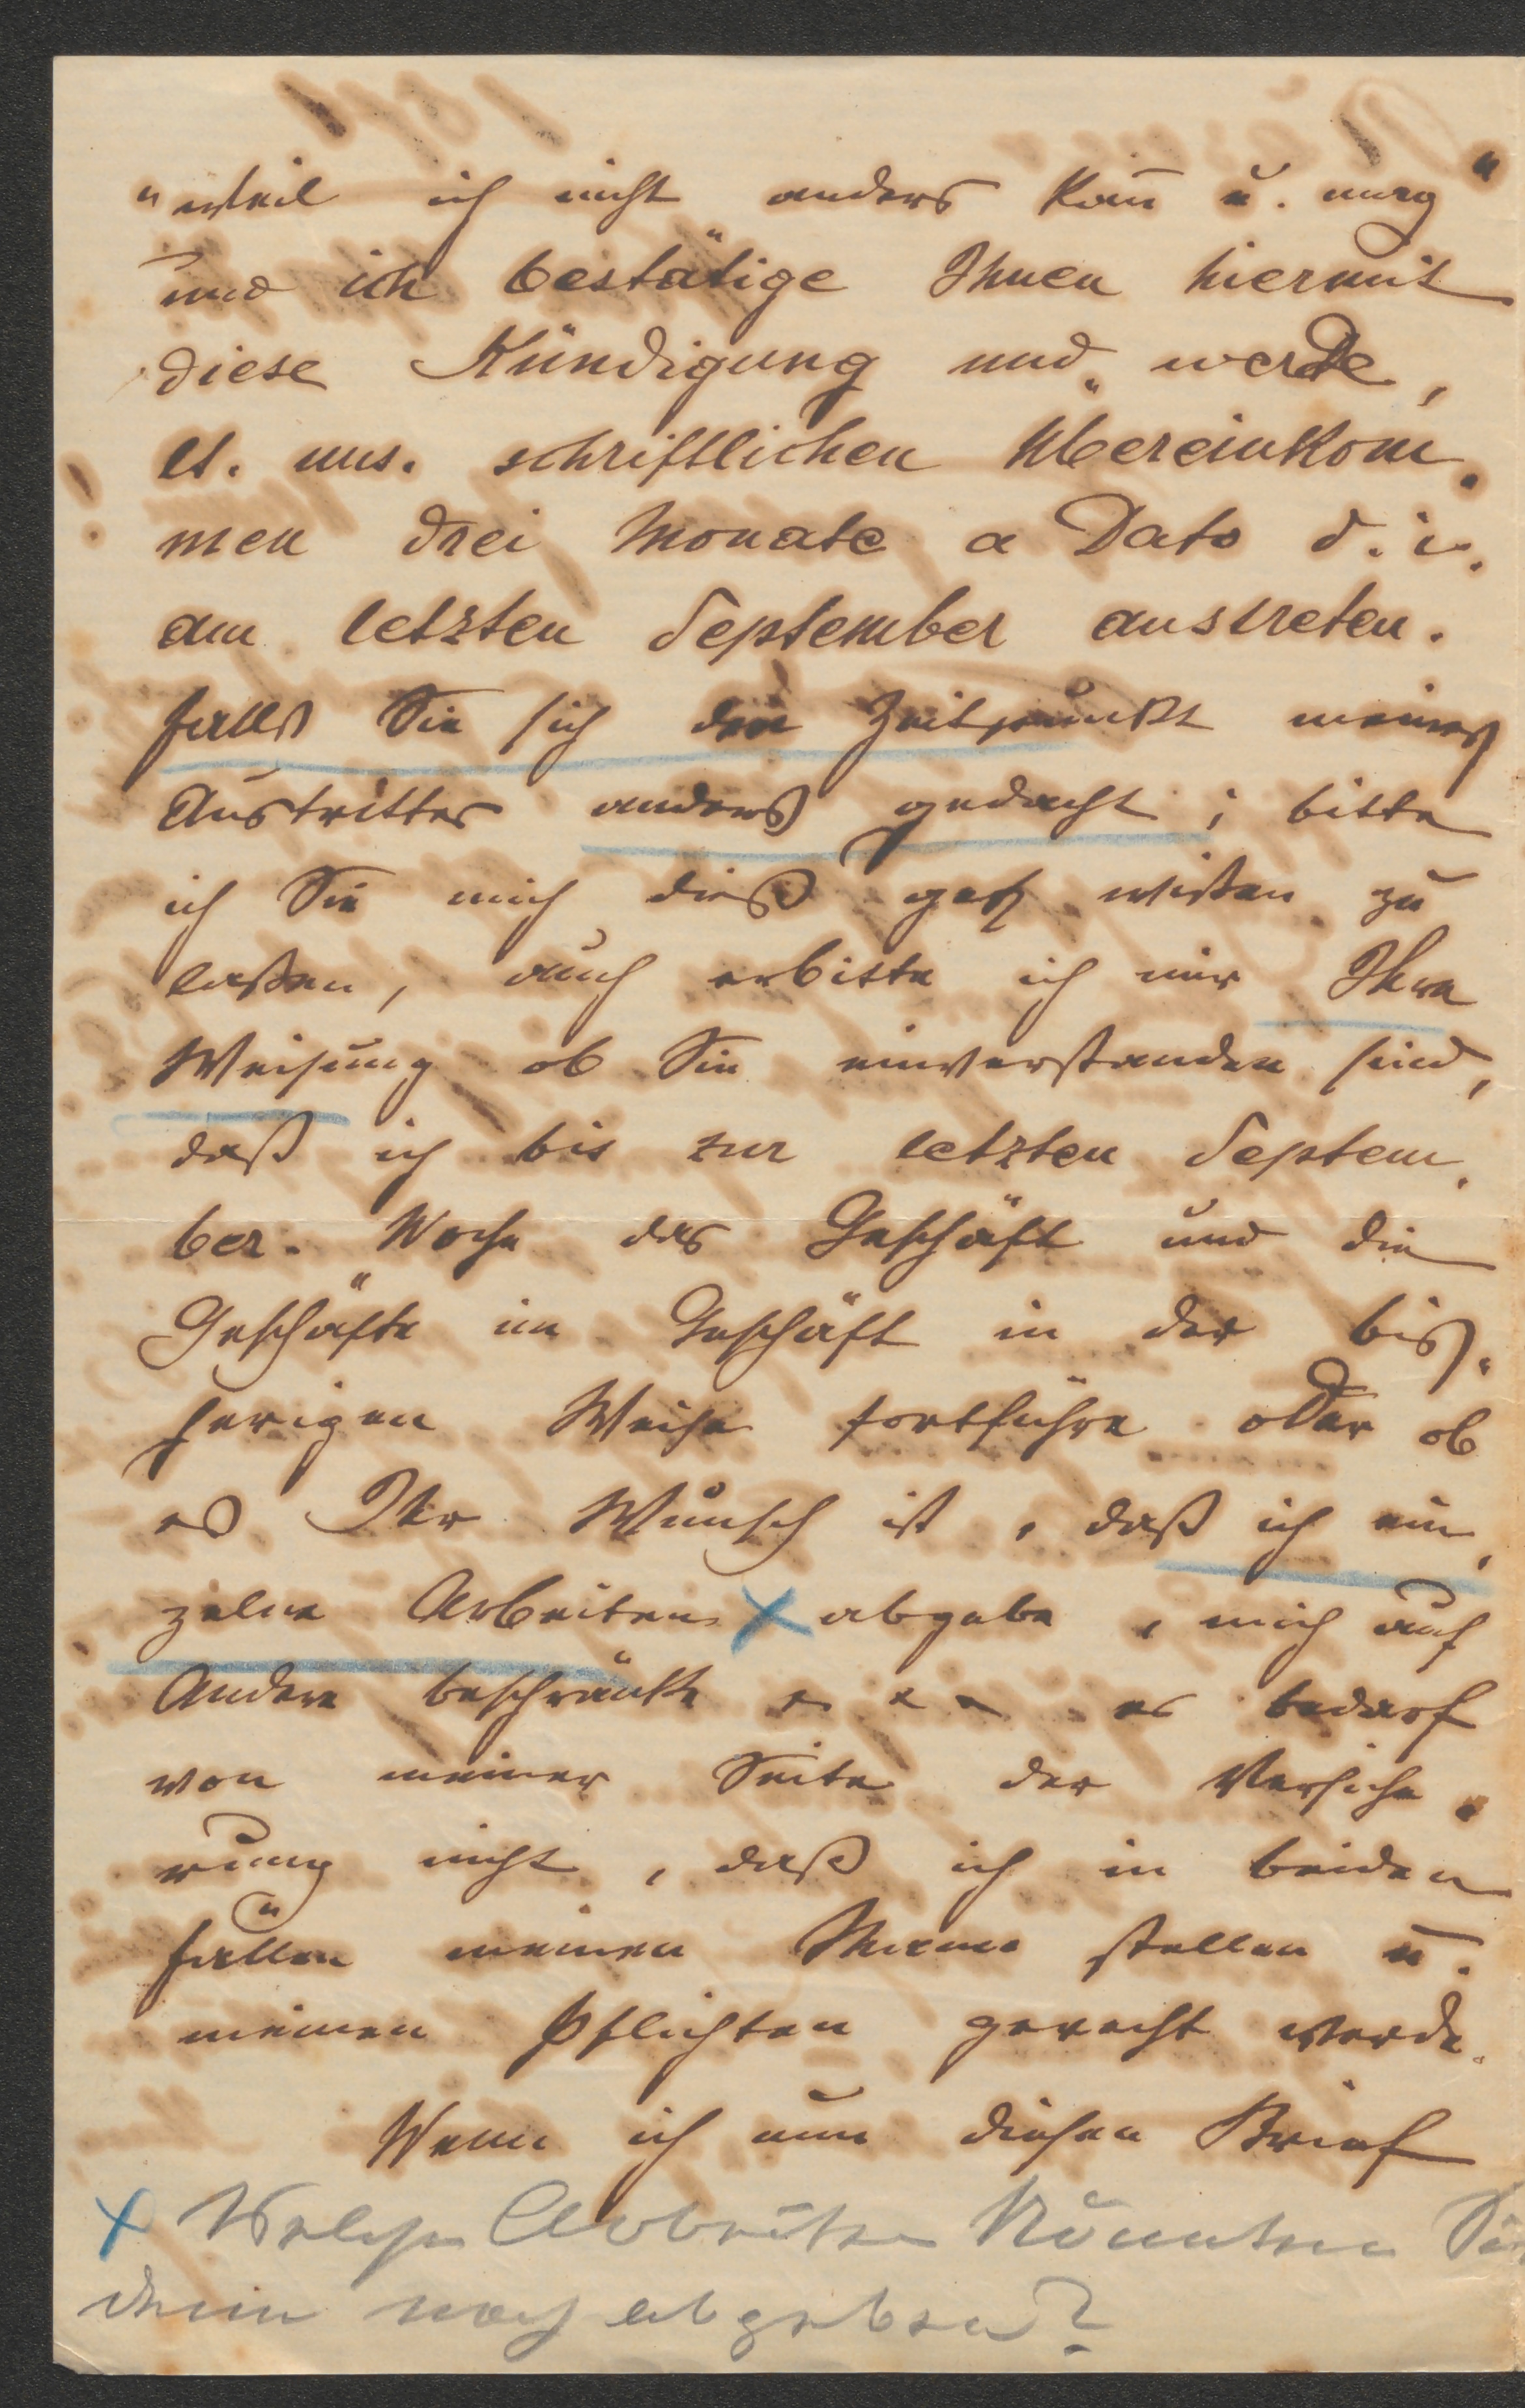 "weil ich nicht anders kan̄ u. mag"
und ich bestätige Ihnen hiermit
diese Kündigung und werde,
lt. uns. schriftlichen Übereinkom-
men drei Monate a Dato d. i.
am letzten September austreten.
Falls Sie sich den Zeitpunkt meines
Austrittes anders gedacht; bitte
ich Sie mich dieß wißen zu
laßen, auch erbitte ich mir Ihre
Weisung ob Sie einverstanden sind,
daß ich bis zur letzten Septem-
ber-Woche das Geschäft und die
Geschäfte im Geschäft in der biß-
herigen Weise fortführe oder ob
es Ihr Wunsch ist, daß ich ein-
zelne Arbeiten x abgebe, mich auf
Andere beschränke es bedarf
von meiner Seite der Versiche-
rung nicht, daß ich in beiden
Fällen meinen Mann stellen u.
meinen Pflichten gerecht werde.
Wenn ich nun diesen Brief
x Welche Arbeiten könnten Sie
denn noch abgeben?